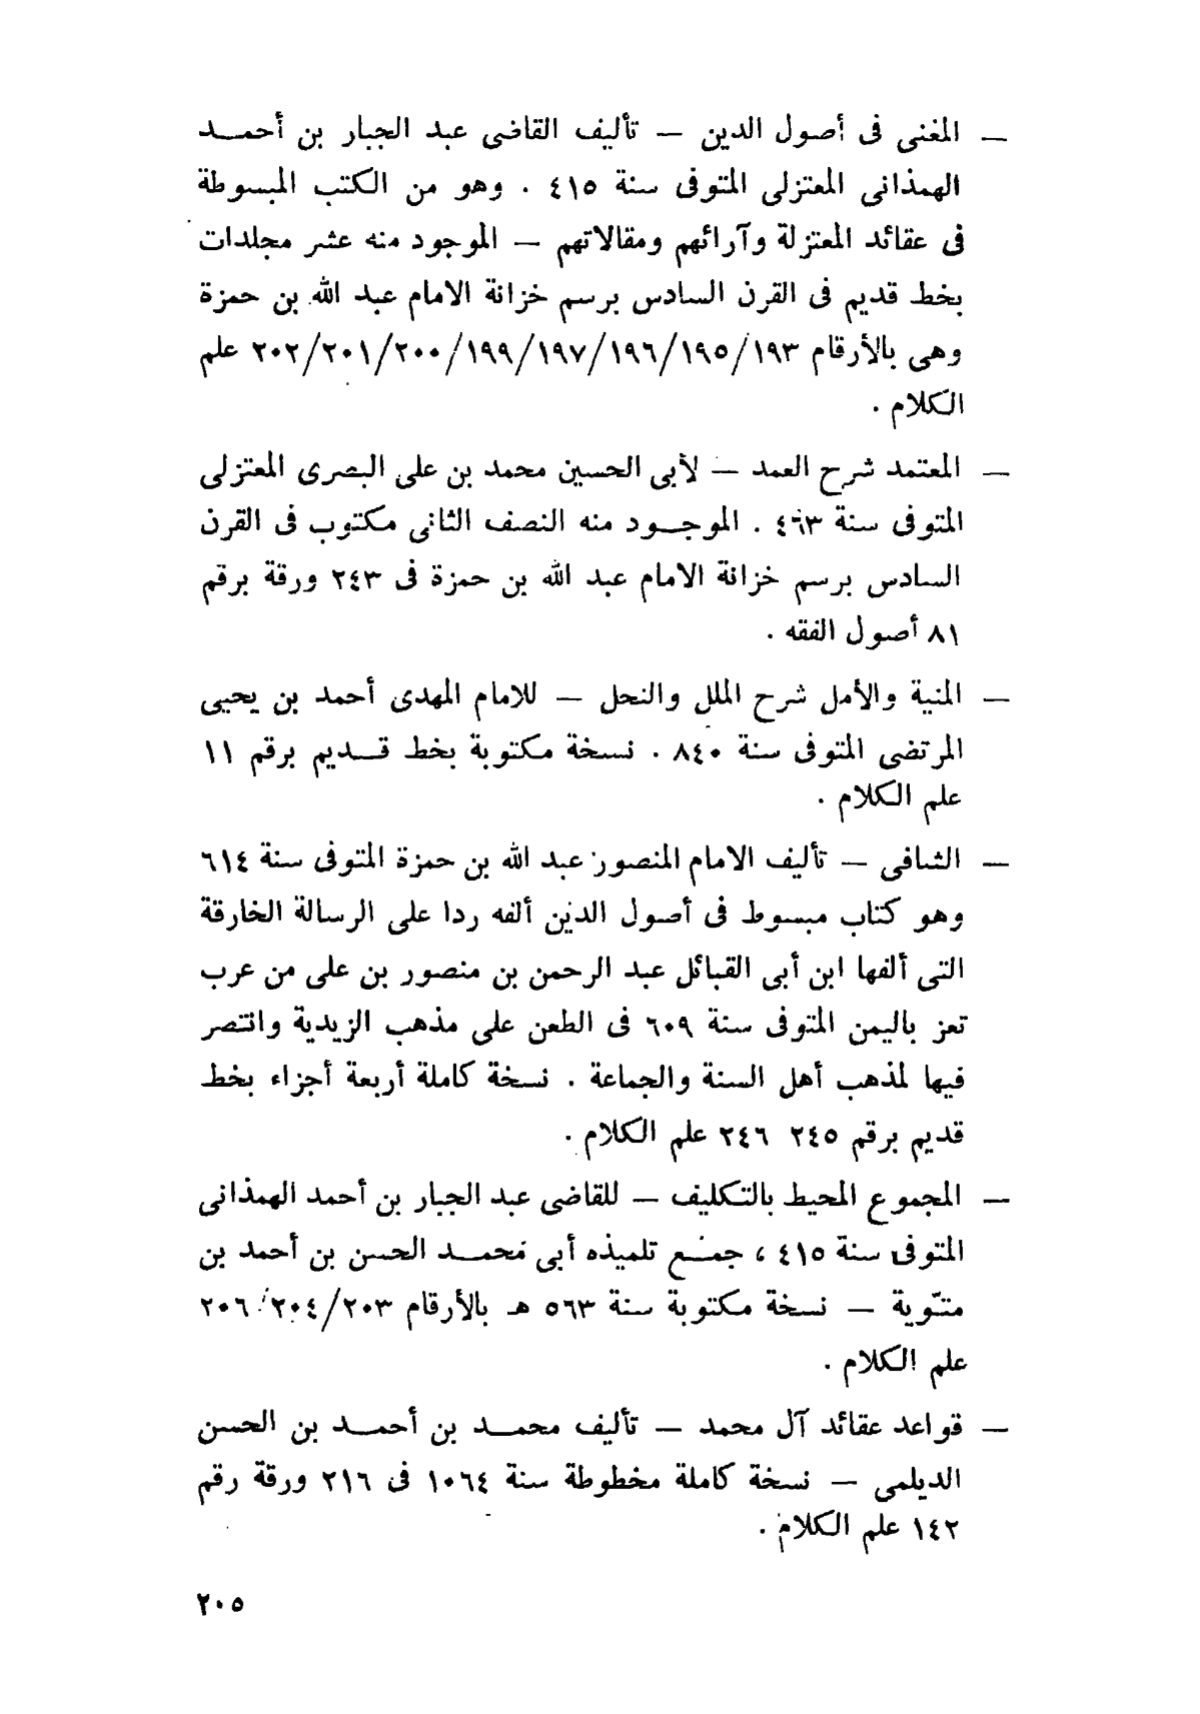 — المغنى فى أصول الدين — تأليف القاضى عبد الجبار بن أحمــد
الهمذانى المعتزلى المتوفى سنة ٤١٥ . وهو من الكتب المبسوطة
فى عقائد المعتزلة وآرائهم ومقالاتهم — الموجود منه عشر مجلدات
بخط قديم فى القرن السادس برسم خزانة الامام عبد الله بن حمزة
وهى بالأرقام ١٩٣/١٩٥/١٩٦/١٩٧/١٩٩/٢٠٠/٢٠١/٢٠٢ علم
الكلام .
— المعتمد شرح العمد — لأبى الحسين محمد بن على البصرى المعتزلى
المتوفى سنة ٤٦٣ . الموجــود منه النصف الثانى مكتوب فى القرن
السادس برسم خزانة الامام عبد الله بن حمزة فى ٢٤٣ ورقة برقم
٨١ أصول الفقه .
— المنية والأمل شرح الملل والنحل — للامام المهدى أحمد بن يحيى
المرتضى المتوفى سنة ٨٤٠ . نسخة مكتوبة بخط قــديم برقم ١١
علم الكلام .
— الشافى — تأليف الامام المنصور عبد الله بن حمزة المتوفى سنة ٦١٤
وهو كتاب مبسوط فى أصول الدين ألفه ردا على الرسالة الخارقة
التى ألفها ابن أبى القبائل عبد الرحمن بن منصور بن على من عرب
تعز باليمن المتوفى سنة ٦٠٩ فى الطعن على مذهب الزيدية وانتصر
فيها لمذهب أهل السنة والجماعة . نسخة كاملة أربعة أجزاء بخط
قديم برقم ٢٤٥ ٢٤٦ علم الكلام .
— المجموع المحيط بالتكليف — للقاضى عبد الجبار بن أحمد الهمذانى
المتوفى سنة ٤١٥ ، جمــع تلميذه أبى محمــد الحسن بن أحمد بن
متّوية — نسخة مكتوبة سنة ٥٦٣ هـ بالأرقام ٢٠٣/٢٠٤/٢٠٦
علم الكلام .
— قواعد عقائد آل محمد — تأليف محمــد بن أحمــد بن الحسن
الديلمى — نسخة كاملة مخطوطة سنة ١٠٦٤ فى ٢١٦ ورقة رقم
١٤٢ علم الكلام .
٢٠٥